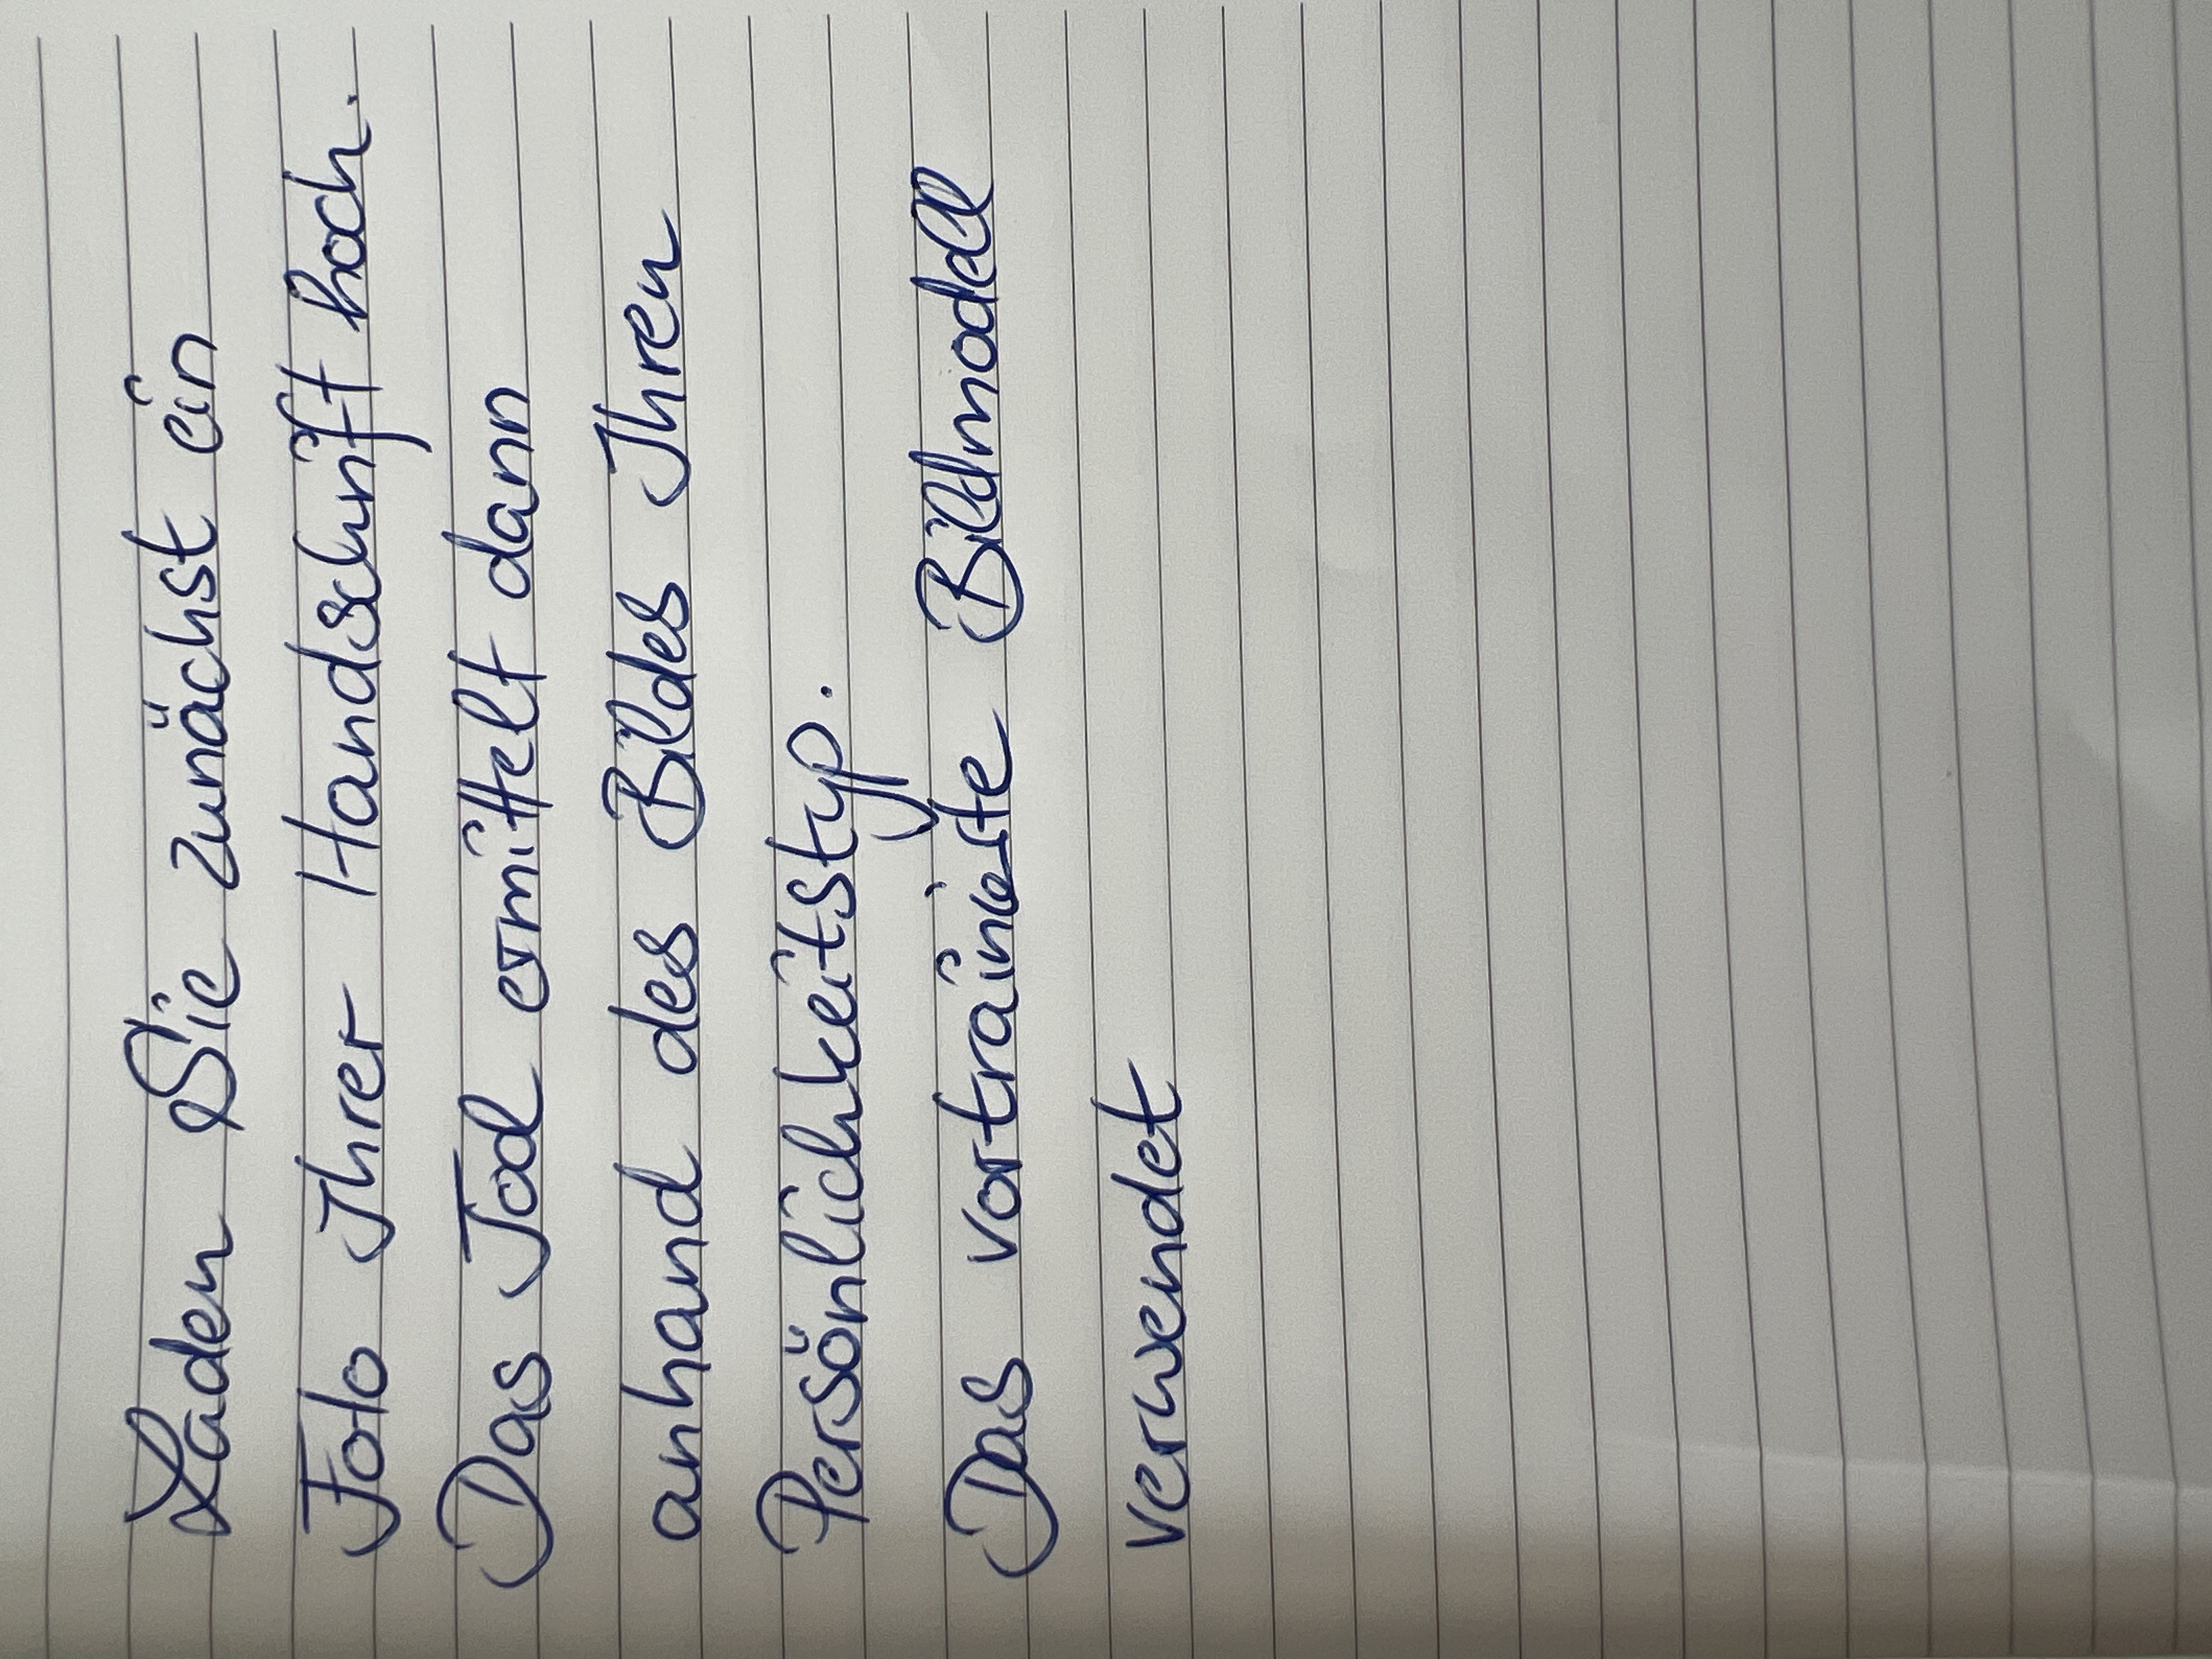 Laden Sie zunächst ein
Foto Ihrer Handschrift hoch.
Das Tool ermittelt dann
anhand des Bildes Ihren
Persönlichkeitstyp.
Das vortrainierte Bildmodell
verwendet